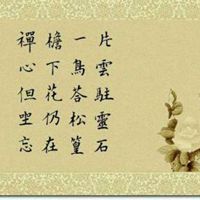 片雲駐靈石
一鳥答松篁
檐下花仍在
禪心但坐忘